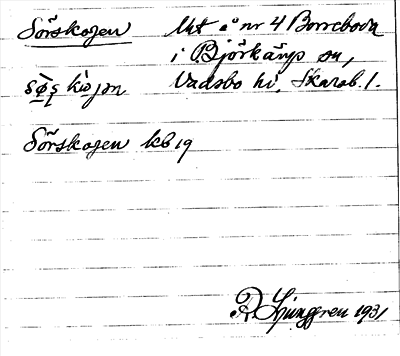 Sörskogen Urt å nr 4 Borreboda
i Björkäng sn,
Vadsbo hd, Skarab. l.
Sörskogen kb 19
R. Ljunggren 1931